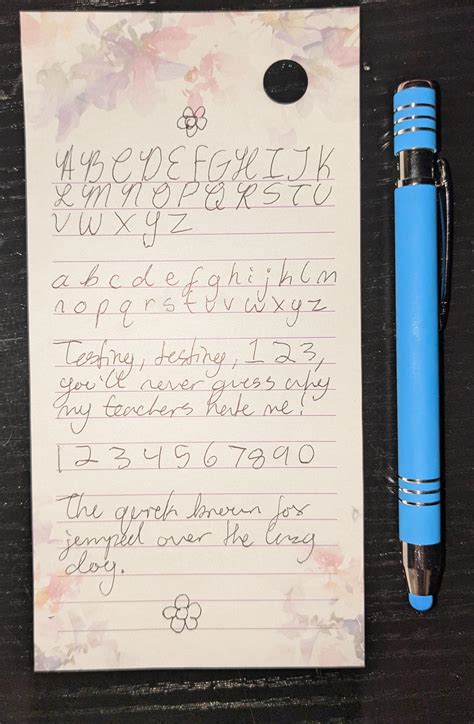 A B C D E F G H I J K
L M N O P Q R S T U
V W X Y Z
a b c d e f g h i j k l m
n o p q r s t u v w x y z
Testing, testing, 1 2 3,
you'll never guess why
my teachers hate me!
1 2 3 4 5 6 7 8 9 0
The quick brown fox
jumped over the lazy
dog.